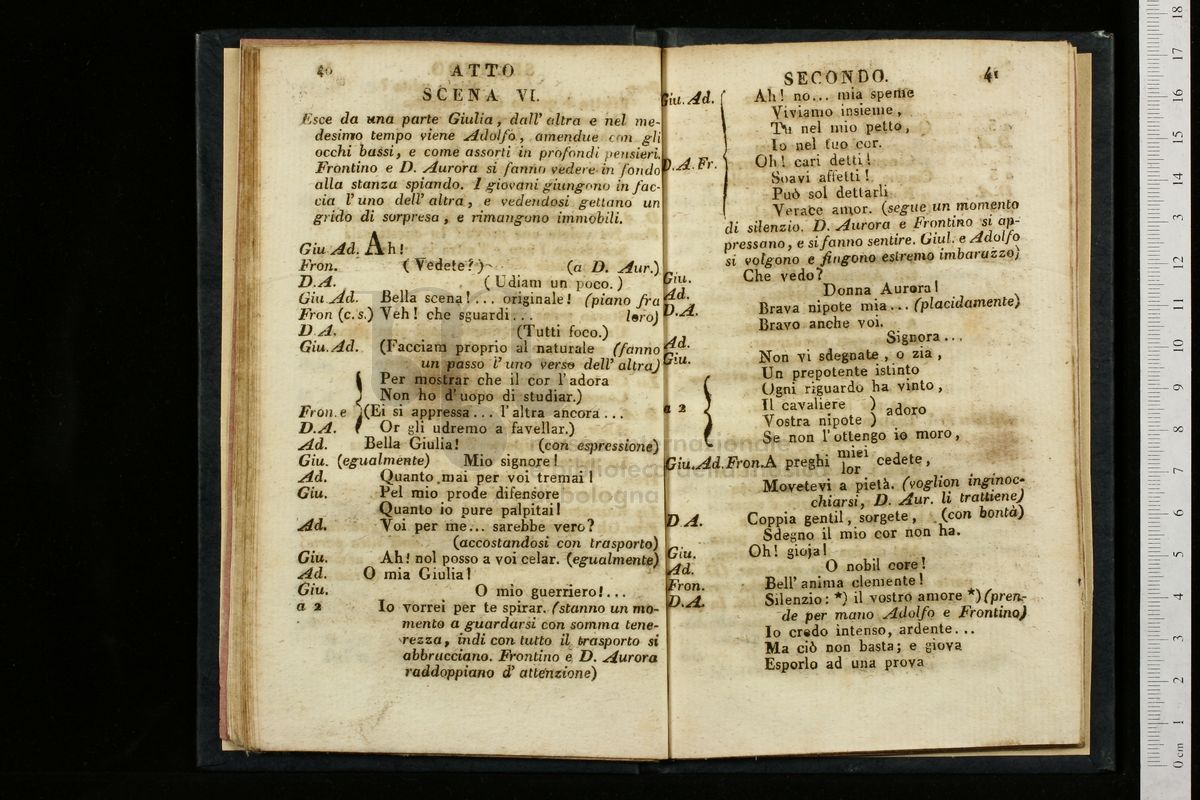 40 ATTO
SCENA VI.
Esce da una parte Giulia, dall' altra e nel me-
desimo tempo viene Adolfo, amendue con gli
occhi bassi, e come assorti in profondi pensieri.
Frontino e D. Aurora si fanno vedere in fondo
alla stanza spiando. I giovani giungono in fac-
cia l'uno dell' altra, e vedendosi gettano un
grido di sorpresa, e rimangono immobili.
Giu Ad. Ah!
Fron. (Vedete?) (a D. Aur.)
D.A. (Udiam un poco.)
Giu Ad. Bella scena!... originale! (piano fra
Fron (c.s.) Veh! che sguardi... loro)
D.A. (Tutti foco.)
Giu. Ad. (Facciam proprio al naturale (fanno
un passo l'uno verso dell' altra)
Per mostrar che il cor l'adora
Non ho d'uopo di studiar.)
Fron. e (Ei si appressa... l'altra ancora...
D.A. Or gli udremo a favellar.)
Ad. Bella Giulia! (con espressione)
Giu. (egualmente) Mio signore!
Ad. Quanto mai per voi tremai!
Giu. Pel mio prode difensore
Quanto io pure palpitai!
Ad. Voi per me... sarebbe vero?
(accostandosi con trasporto)
Giu. Ah! nol posso a voi celar. (egualmente)
Ad. O mia Giulia!
Giu. O mio guerriero!...
a 2 Io vorrei per te spirar. (stanno un mo-
mento a guardarsi con somma tene-
rezza, indi con tutto il trasporto si
abbracciano. Frontino e D. Aurora
raddoppiano d' attenzione)
SECONDO. 41
Giu. Ad. Ah! no... mia speme
Viviamo insieme,
Tu nel mio petto,
Io nel tuo cor.
D.A. Fr. Oh! cari detti!
Soavi affetti!
Può sol dettarli
Verace amor. (segue un momento
di silenzio. D. Aurora e Frontino si ap-
pressano, e si fanno sentire. Giul. e Adolfo
si volgono e fingono estremo imbarazzo)
Giu. Che vedo?
Ad. Donna Aurora!
D.A. Brava nipote mia... (placidamente)
Bravo anche voi.
Ad. Signora...
Giu. Non vi sdegnate, o zia,
Un prepotente istinto
Ogni riguardo ha vinto,
a 2 Il cavaliere ) adoro
Vostra nipote )
Se non l'ottengo io moro,
Giu. Ad. Fron. A preghi miei cedete,
lor
Movetevi a pietà. (voglion inginoc-
chiarsi, D. Aur. li trattiene)
D.A. Coppia gentil, sorgete, (con bontà)
Sdegno il mio cor non ha.
Giu. Oh! gioja!
Ad. O nobil core!
Fron. Bell' anima clemente!
D.A. Silenzio: *) il vostro amore *) (pren-
de per mano Adolfo e Frontino)
Io credo intenso, ardente...
Ma ciò non basta; e giova
Esporlo ad una prova
museo internazionale
e biblioteca della musica
di bologna
0 cm 1 2 3 4 5 6 7 8 9 10 11 12 13 14 15 16 17 18